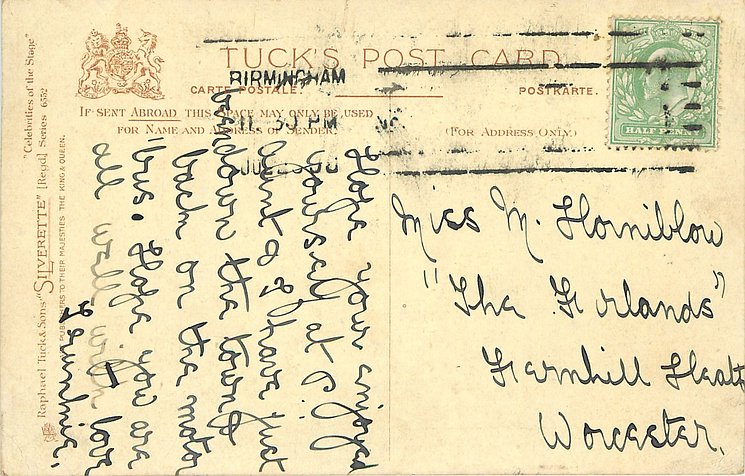 TUCK'S POST CARD
CARTE POSTALE.
POSTKARTE.
IF SENT ABROAD THIS SPACE MAY ONLY BE USED
FOR NAME AND ADDRESS OF SENDER.
(FOR ADDRESS ONLY.)
BIRMINGHAM
PM
HALF PENNY
"Celebrities of the Stage"
Raphael Tuck & Sons' "SILVERETTE" [Regd.] Series 6552
PUBLISHERS TO THEIR MAJESTIES THE KING & QUEEN.
Hope your enjoyed
yourself at P.
Aunt & I have just
been down the town &
back on the motor
'bus. Hope you are
all well with love
Miss M. Horniblow
"The Firlands"
Fernhill Heath
Worcester.